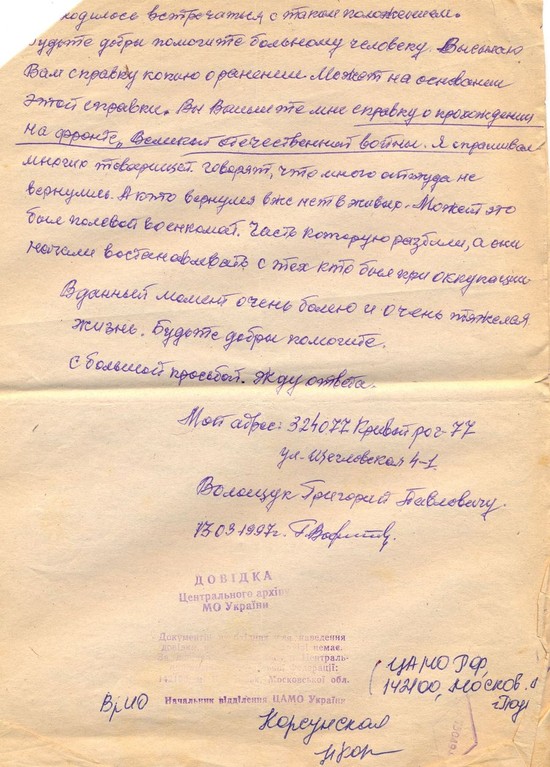 ходилось встречаться с таким положением.
Будьте добры помогите больному человеку. Высылаю
Вам справку копию о ранении. Может на основании
этой справки. Вы Вышлите мне справку о прохождении
на фронте, Великой отечественной войны. Я спрашивал
многих товарищей. говорят, что много оттуда не
вернулись. А кто вернулся вже нет в живых. Может это
был полевой военкомат. Часть которую разбили, а они
начали востанавлевать с тех кто был при оккупации
В данный момент очень болею и очень тяжелая
жизнь. Будьте добры помогите.
с большой просьбой. Жду ответа.
Мой адрес: 324077 Кривой рог-77
ул-Щегловская 4-1
Волощук Григорий Павловичу.
13.03.1997г.
ДОВІДКА
Центрального архі
МО України
Документів
немає.
Московської обл.
Начальник відділення ЦАМО України
ВрИО
Корсунская
ЦАМО РФ,
142100, Москов.